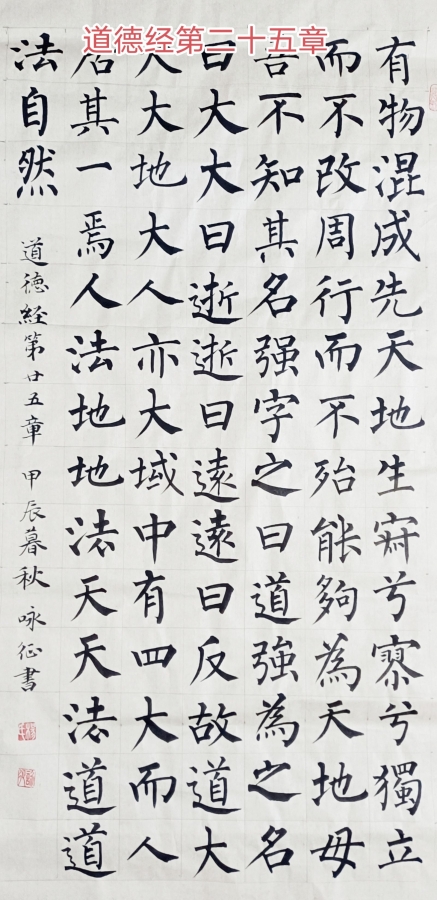 道德经第二十五章
有物混成先天地生寂兮寥兮獨立
而不改周行而不殆能夠為天地母
吾不知其名强字之曰道強為之名
曰大大曰逝逝曰遠遠曰反故道大
天大地大人亦大域中有四大而人
居其一焉人法地地法天天法道道
法自然
道德經第廿五章 甲辰暮秋 咏征書